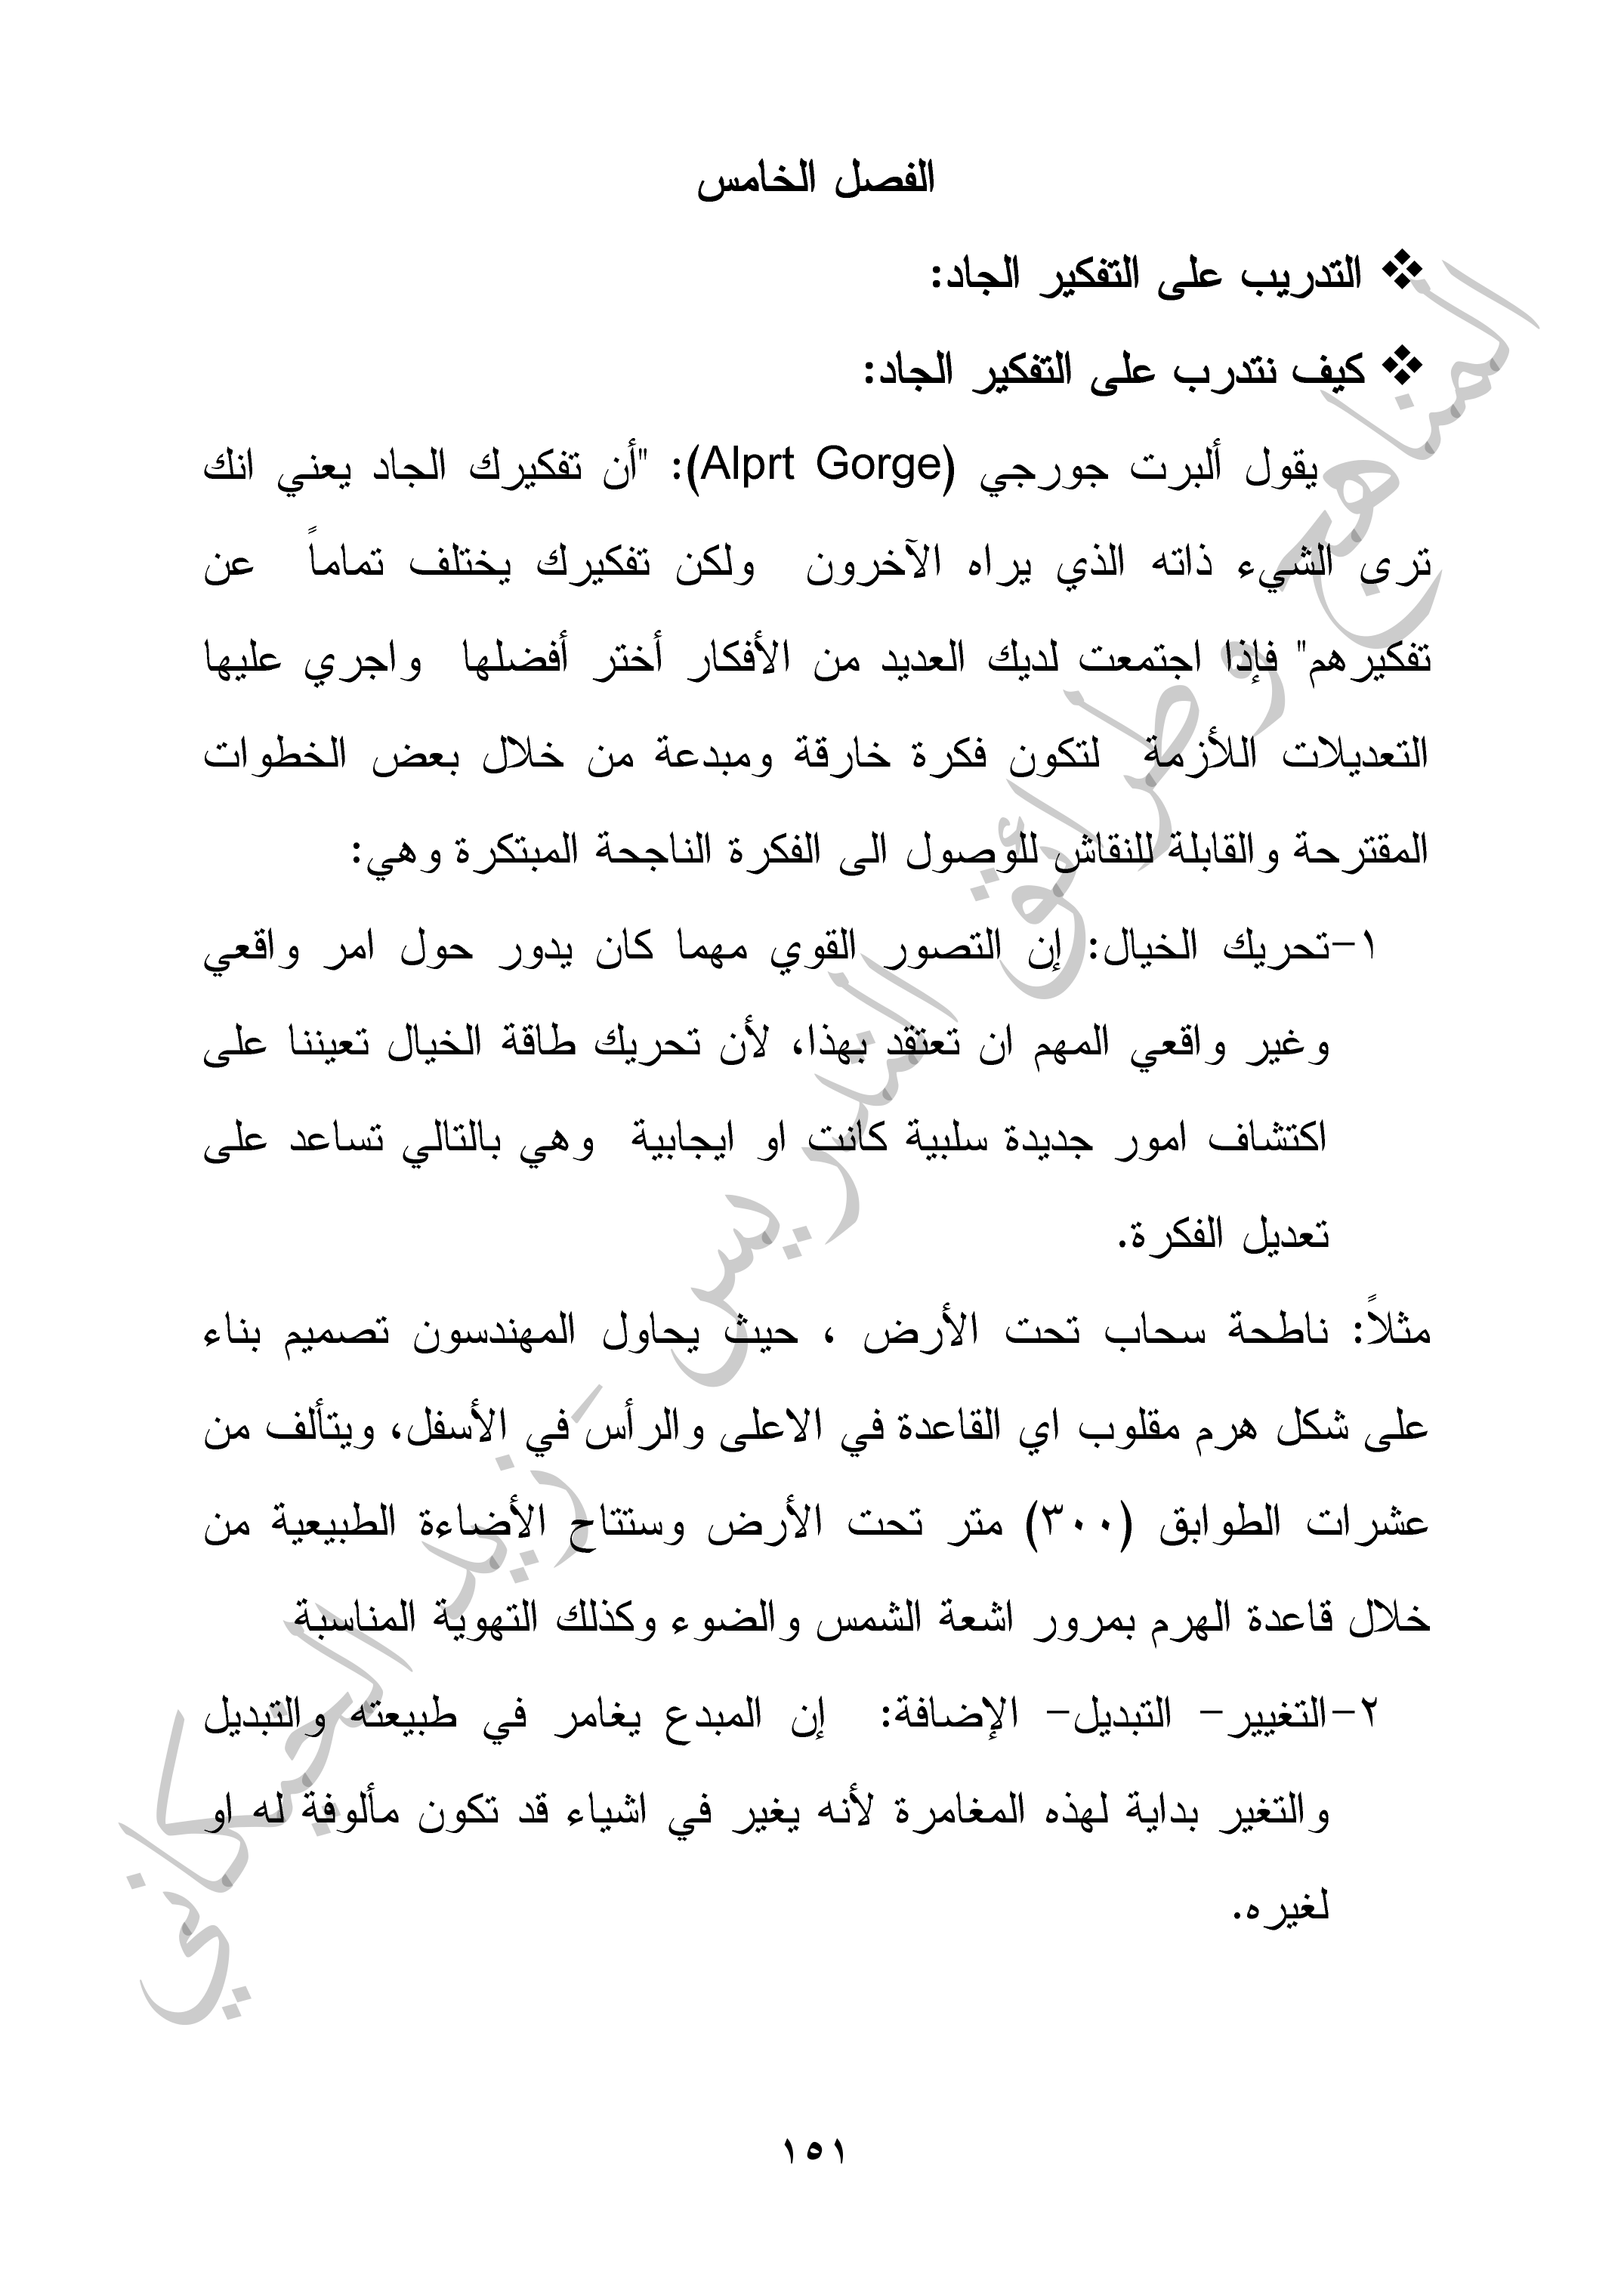 الفصل الخامس
❖ التدريب على التفكير الجاد:
❖ كيف نتدرب على التفكير الجاد:
يقول ألبرت جورجي (Alprt Gorge): "أن تفكيرك الجاد يعني انك
ترى الشيء ذاته الذي يراه الآخرون ولكن تفكيرك يختلف تماماً عن
تفكيرهم" فإذا اجتمعت لديك العديد من الأفكار أختر أفضلها واجري عليها
التعديلات اللأزمة لتكون فكرة خارقة ومبدعة من خلال بعض الخطوات
المقترحة والقابلة للنقاش للوصول الى الفكرة الناجحة المبتكرة وهي:
١-تحريك الخيال: إن التصور القوي مهما كان يدور حول امر واقعي
وغير واقعي المهم ان تعتقد بهذا، لأن تحريك طاقة الخيال تعيننا على
اكتشاف امور جديدة سلبية كانت او ايجابية وهي بالتالي تساعد على
تعديل الفكرة.
مثلاً: ناطحة سحاب تحت الأرض ، حيث يحاول المهندسون تصميم بناء
على شكل هرم مقلوب اي القاعدة في الاعلى والرأس في الأسفل، ويتألف من
عشرات الطوابق (٣٠٠) متر تحت الأرض وستتاح الأضاءة الطبيعية من
خلال قاعدة الهرم بمرور اشعة الشمس والضوء وكذلك التهوية المناسبة
٢-التغيير- التبديل- الإضافة: إن المبدع يغامر في طبيعته والتبديل
والتغير بداية لهذه المغامرة لأنه يغير في اشياء قد تكون مألوفة له او
لغيره.
١٥١
المناهج وطرائق التدريس - زيد الحيكاني